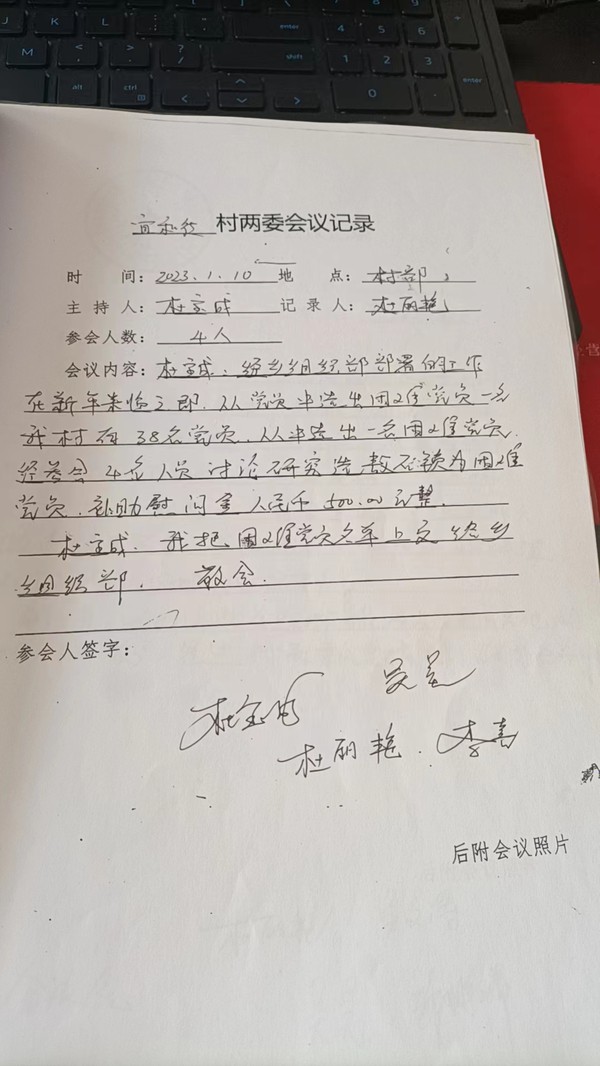 村两委会议记录
时 间：2023.1.10 地 点：村部
主 持 人：杜宝成 记 录 人：杜丽艳
参会人数：4人
会议内容：杜宝成：经乡组织部部署的工作
在新年来临之即，从党员中选出困难党员一名
我村有38名党员，从中选出一名困难党员，
经参会4名人员讨论研究选 为困难
党员，补助慰问金人民币500.00元整。
杜宝成：我把困难党员名单上交给乡
组织部。 散会.
参会人签字：
杜丽艳. 李喜
后附会议照片